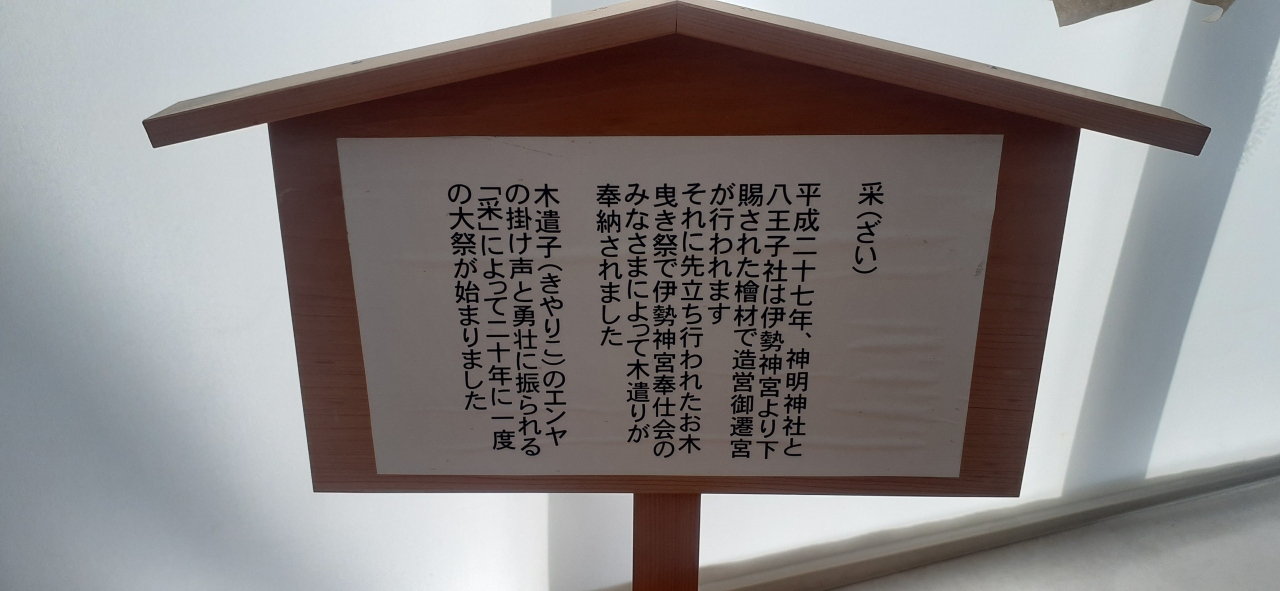 采（ざい）
平成二十七年、神明神社と
八王子社は伊勢神宮より下
賜された檜材で造営御遷宮
が行われます
それに先立ち行われたお木
曳き祭で伊勢神宮奉仕会の
みなさまによって木遣りが
奉納されました
木遣子（きやりこ）のエンヤ
の掛け声と勇壮に振られる
「采」によって二十年に一度
の大祭が始まりました